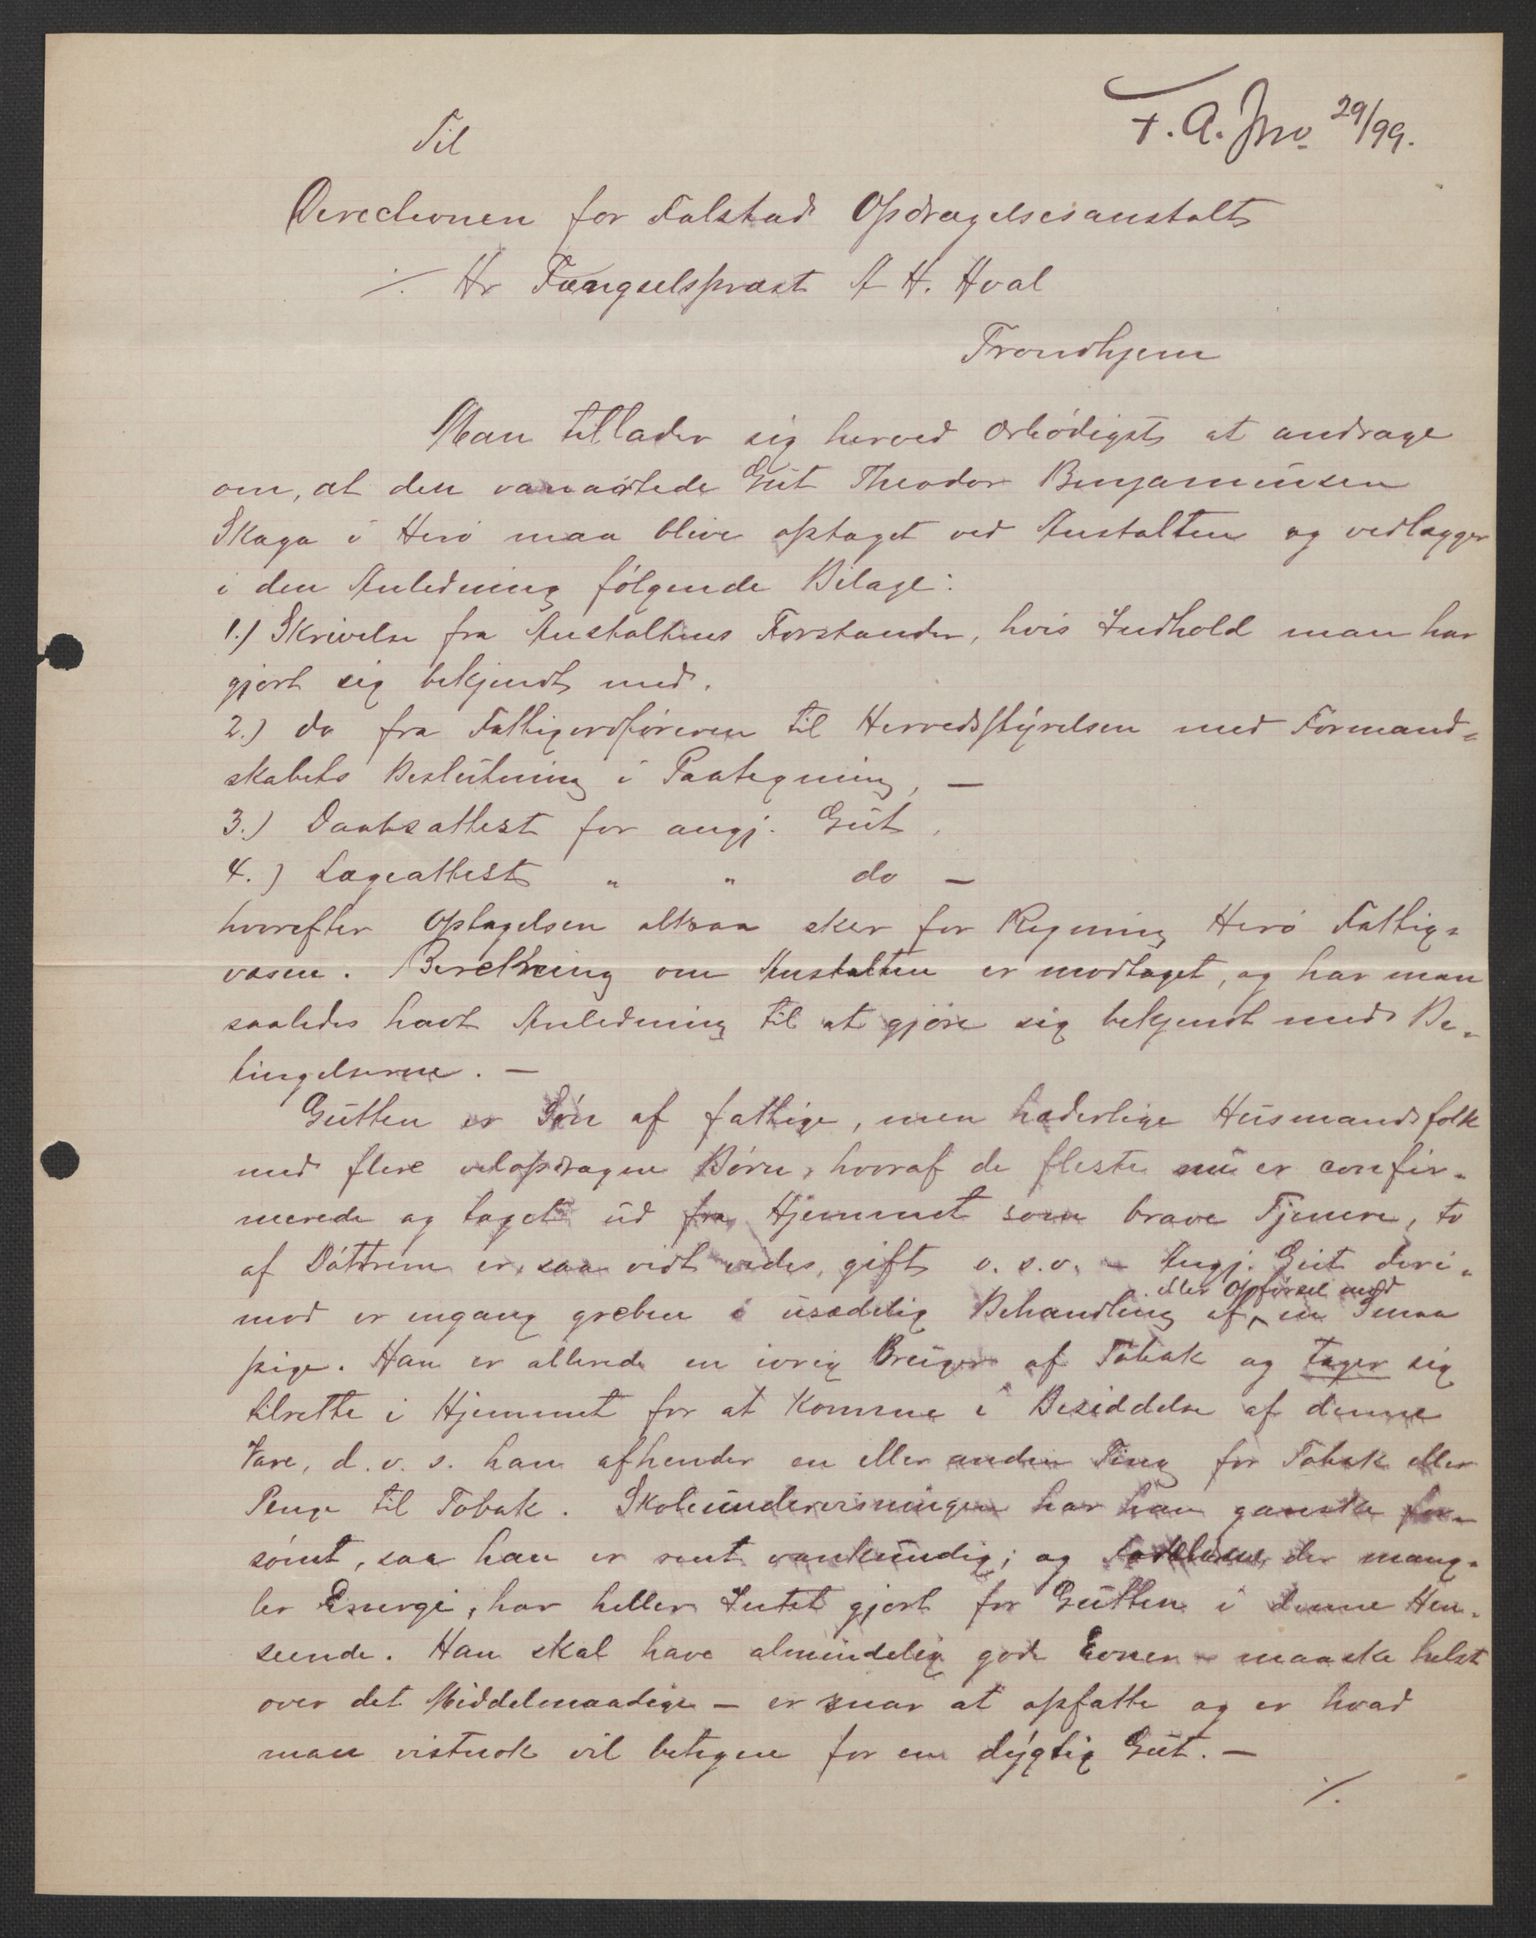 F. A. Jno 29/99.
Til
Directionen for Falstad Opdragelsesanstalt
./. Hr Fængselspræst A H. Hval
Trondhjem
Man tillader sig herved ærbødigst at andrage
om, at den vanartede Gut Theodor Benjaminsen
Skaga i Herø maa blive optaget ved Anstalten og vedlægger
i den Anledning følgende Bilage:
1.) Skrivelse fra Anstaltens Forstander, hvis Indhold man har
gjort sig bekjendt med.
2.) do fra Fattigordføreren til Herredsstyrelsen med Formand-
skabets Beslutning i Paategning, —
3.) Daabsattest for angj. Gut,
4.) Lægeattest " " do —
hvorefter Optagelsen altsaa sker for Regning Herø Fattig-
væsen. Beretning om Anstalten er modtaget, og har man
saaledes havt Anledning til at gjøre sig bekjendt med Be-
tingelserne. —
Gutten er Søn af fattige, men hæderlige Husmandsfolk
med flere velopdragne Børn, hvoraf de fleste nu er confir-
merede og taget ud fra Hjemmet som brave Tjenere, to
af Døttrene er, saa vidt vides, gift o. s. v. — Angj. Gut deri-
mod er engang greben i usædelig Behandling af eller Opførsel mod en Smaa
pige. Han er allerede en ivrig Bruger af Tobak og tager sig
tilrette i Hjemmet for at komme i Besiddelse af denne
Vare, d. v. s. han afhender en eller anden Ting for Tobak eller
Penge til Tobak. Skoleundervisningen har han ganske for-
sømt, saa han er rent vankundig; og Forældrene, der mang-
ler Energi, har heller Intet gjort for Gutten i denne Hen-
seende. Han skal have almindelig gode Evner – maaske helst
over det Middelmaadige — er snar at opfatte og er hvad
man vistnok vil betegne for en dygtig Gut. —
./.